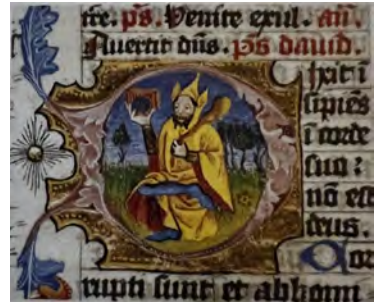 tre. ps. Venite exul. añ.
Auertit dñs. ps dauid.
ixit ī
sipiēs
ī corde
suo :
nō est
deus.
Cor
rupti sunt et abhomi